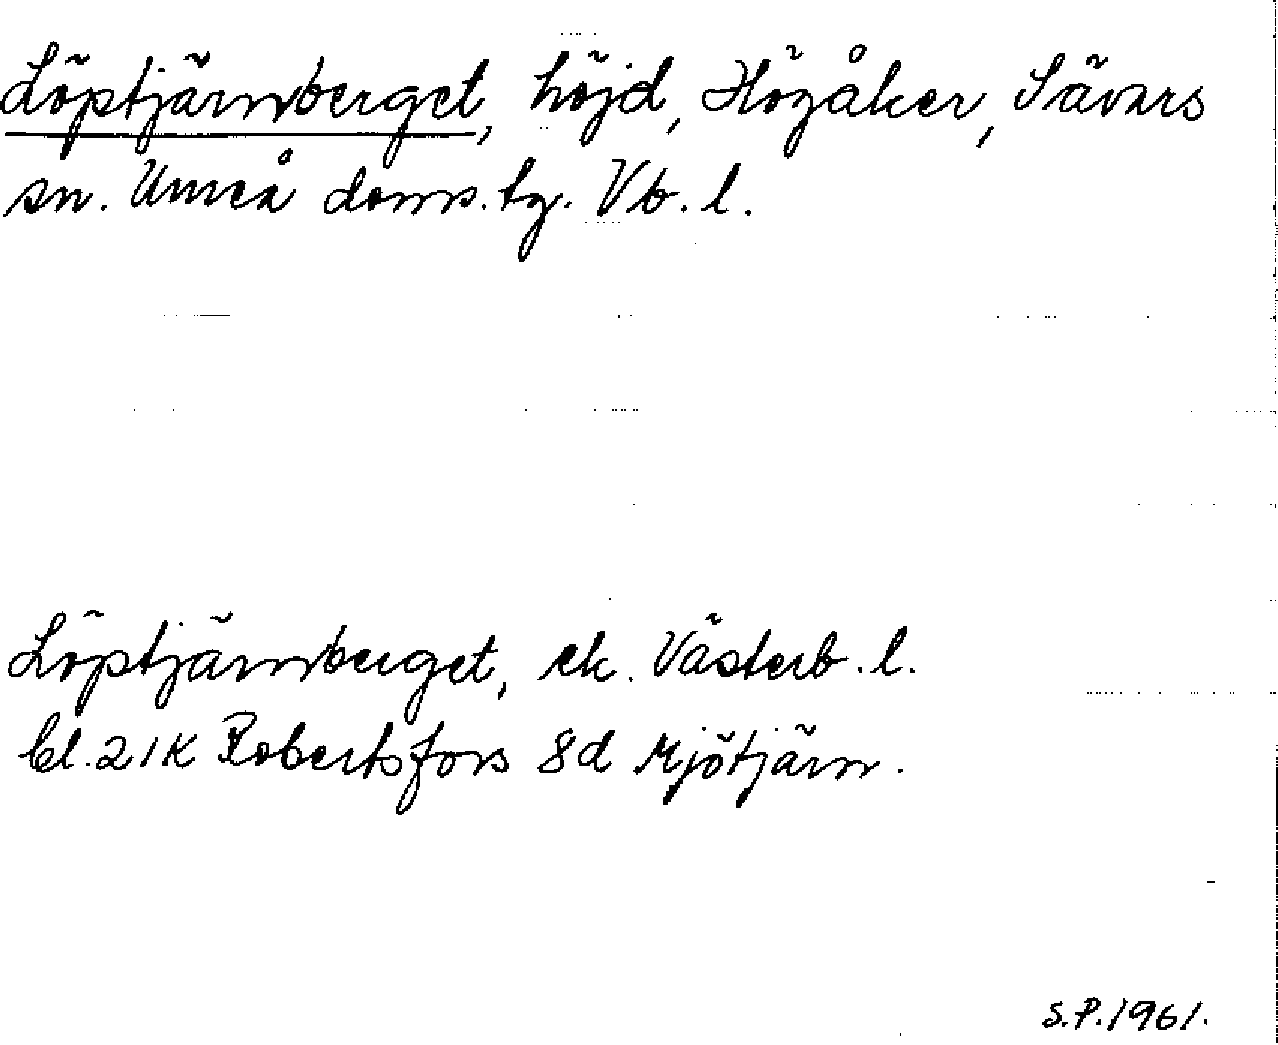 Löptjärnberget, höjd, Högåker, Sävars
sn. Umeå doms. tg. Vb. l.
Löptjärnberget, ek. Västerb. l.
bl. 21K Robertsfors 8d Mjötjärn.
S.P. 1961.